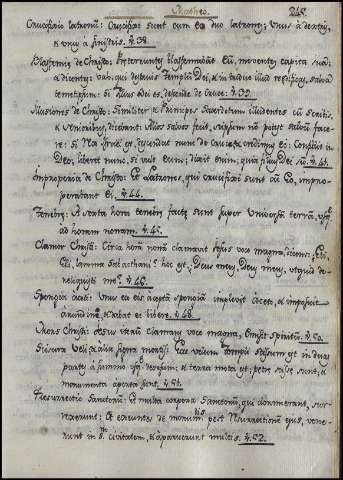 Matheo. 248
Crucifixio latronum: Crucifixi sunt cum eo duo latrones; Unus à dextris,
& unus à sinistris. ℣.38.
Blasfemiæ de Christo: Prætereuntes blasfemabant Eũ, moventes capita sua,
& dicentes: vah, qui destruis Templũ Dei, & in triduo illud reædificas, salva
temetipsum: si filius Dei es, descende de Cruce. ℣.39.
Illusiones de Christo: Similiter & Principes Sacerdotum illudentes cũ scribis,
& senioribus, dicebant: Alios salvos fecit, seipsum nõ potest salvũ face-
re: si Rex Israel est, descendat nunc de Cruce, & credimus ei: Confidit in
Deo, liberet nunc, si vult eum; dixit enim; quia filius Dei sũ. ℣.41.
Improperia de Christo: Et Latrones, qui crucifixi sunt cũ Eo, impro-
perabant Ei. ℣.44.
Tenebræ: A sexta hora tenebræ factæ sunt super Universã terrã, usq;
ad horam nonam. ℣.45.
Clamor Christi: Circa horã nonã clamavit Jesus voce magna, dicens: Eli,
Eli, lamma sabacthani? hoc est; Deus meus, Deus meus, utquid de-
reliquisti me? ℣.46.
Spongia aceti: Unus ex eis acceptã spongiã implevit aceto, & imposuit
arundini, & dabat ei bibere. ℣.48.
Mors Christi: Jesus iterũ clamans voce magna, Emisit spiritũ. ℣.50.
Scissura veli, & alia signa mortis: Ecce velum Templi scissum est in duas
partes à summo usq; deorsum; & terra mota est, petræ scissæ sunt, &
monumenta aperta sunt. ℣.51.
Resurrectio Sanctorũ: Et multa corpora Sanctorũ, qui dormierant, surr-
exerunt: Et exeuntes de monumtis post Resurrectionẽ ejus, vene-
runt in Stm Civitatem, & apparuerunt multis. ℣.52.